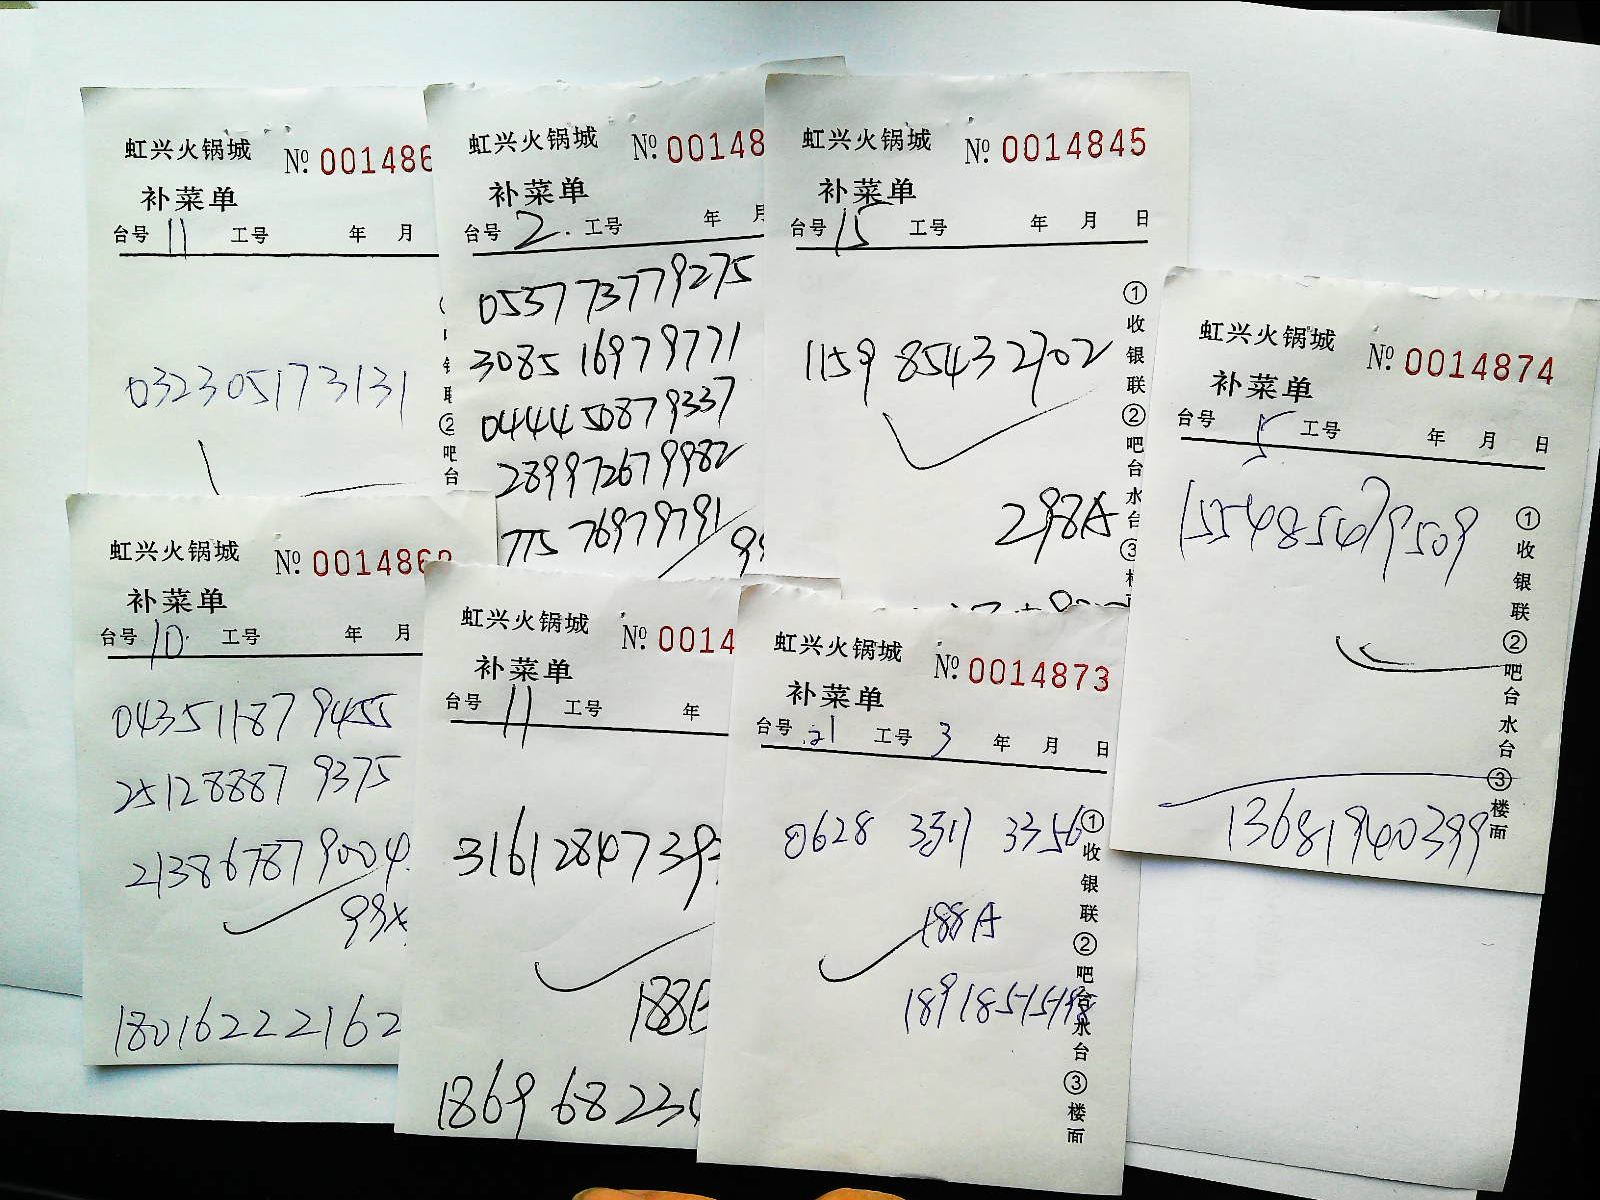 虹兴火锅城 № 001486
补菜单
台号 11 工号 年 月
032305173131
虹兴火锅城 № 00148
补菜单
台号 2. 工号 年 月
053773779275
308516979771
044450879337
289972679982
775 76979791
虹兴火锅城 № 0014845
补菜单
台号 15 工号 年 月 日
1159 8543 2902
298A
①收银联②吧台水台③
虹兴火锅城 № 0014874
补菜单
台号 5 工号 年 月 日
155485679509
13681940399
①收银联②吧台水台③楼面
虹兴火锅城 № 001486
补菜单
台号 10. 工号 年 月
043511879455
25128887 9375
213867879004
99x
18016222162
虹兴火锅城 № 0014
补菜单
台号 11 工号 年
31612847 39
188B
1869 68 223
虹兴火锅城 № 0014873
补菜单
台号 21 工号 3 年 月 日
0628 3311 3356
188A
18918515198
①收银联②吧台水台③楼面